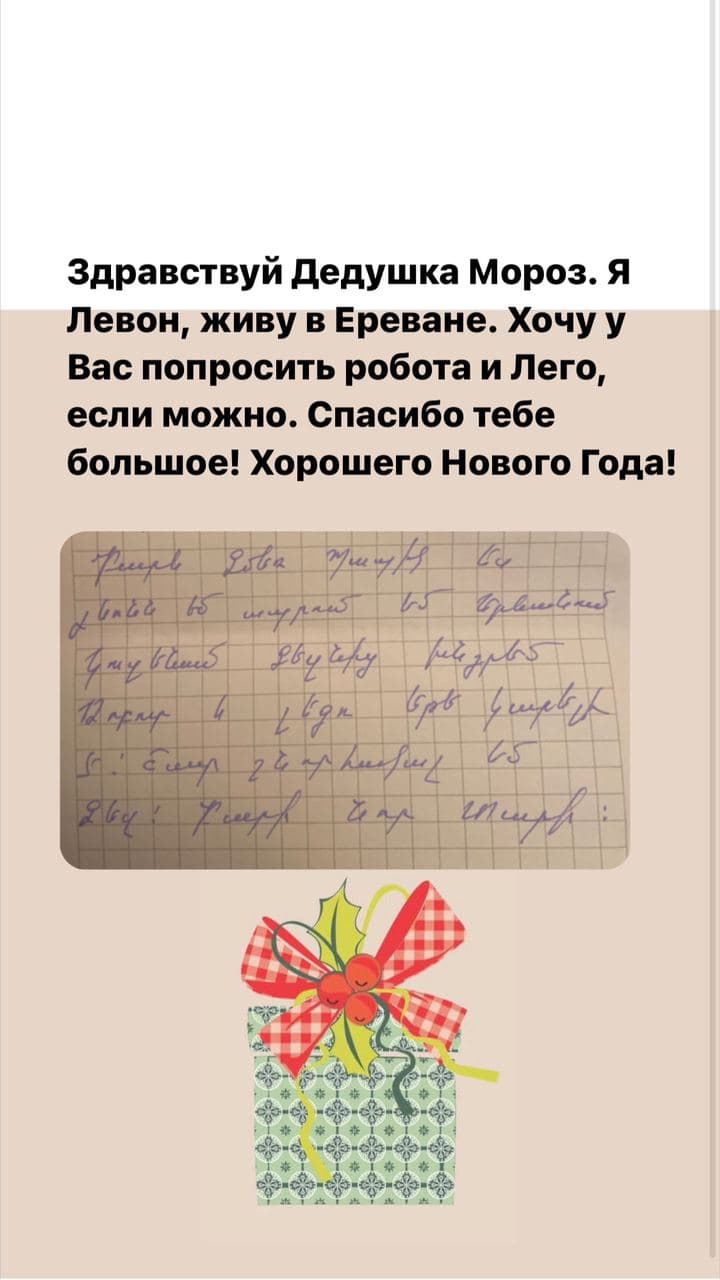 Здравствуй Дедушка Мороз. Я
Левон, живу в Ереване. Хочу у
Вас попросить робота и Лего,
если можно. Спасибо тебе
большое! Хорошего Нового Года!
Բարև Ես
եմ ապրում եմ Երևանում
Կուզենամ խնդրեմ
և լեգո կարելի
է: Շատ շնորհակալ եմ
Ձեզ: Բարի Նոր Տարի: